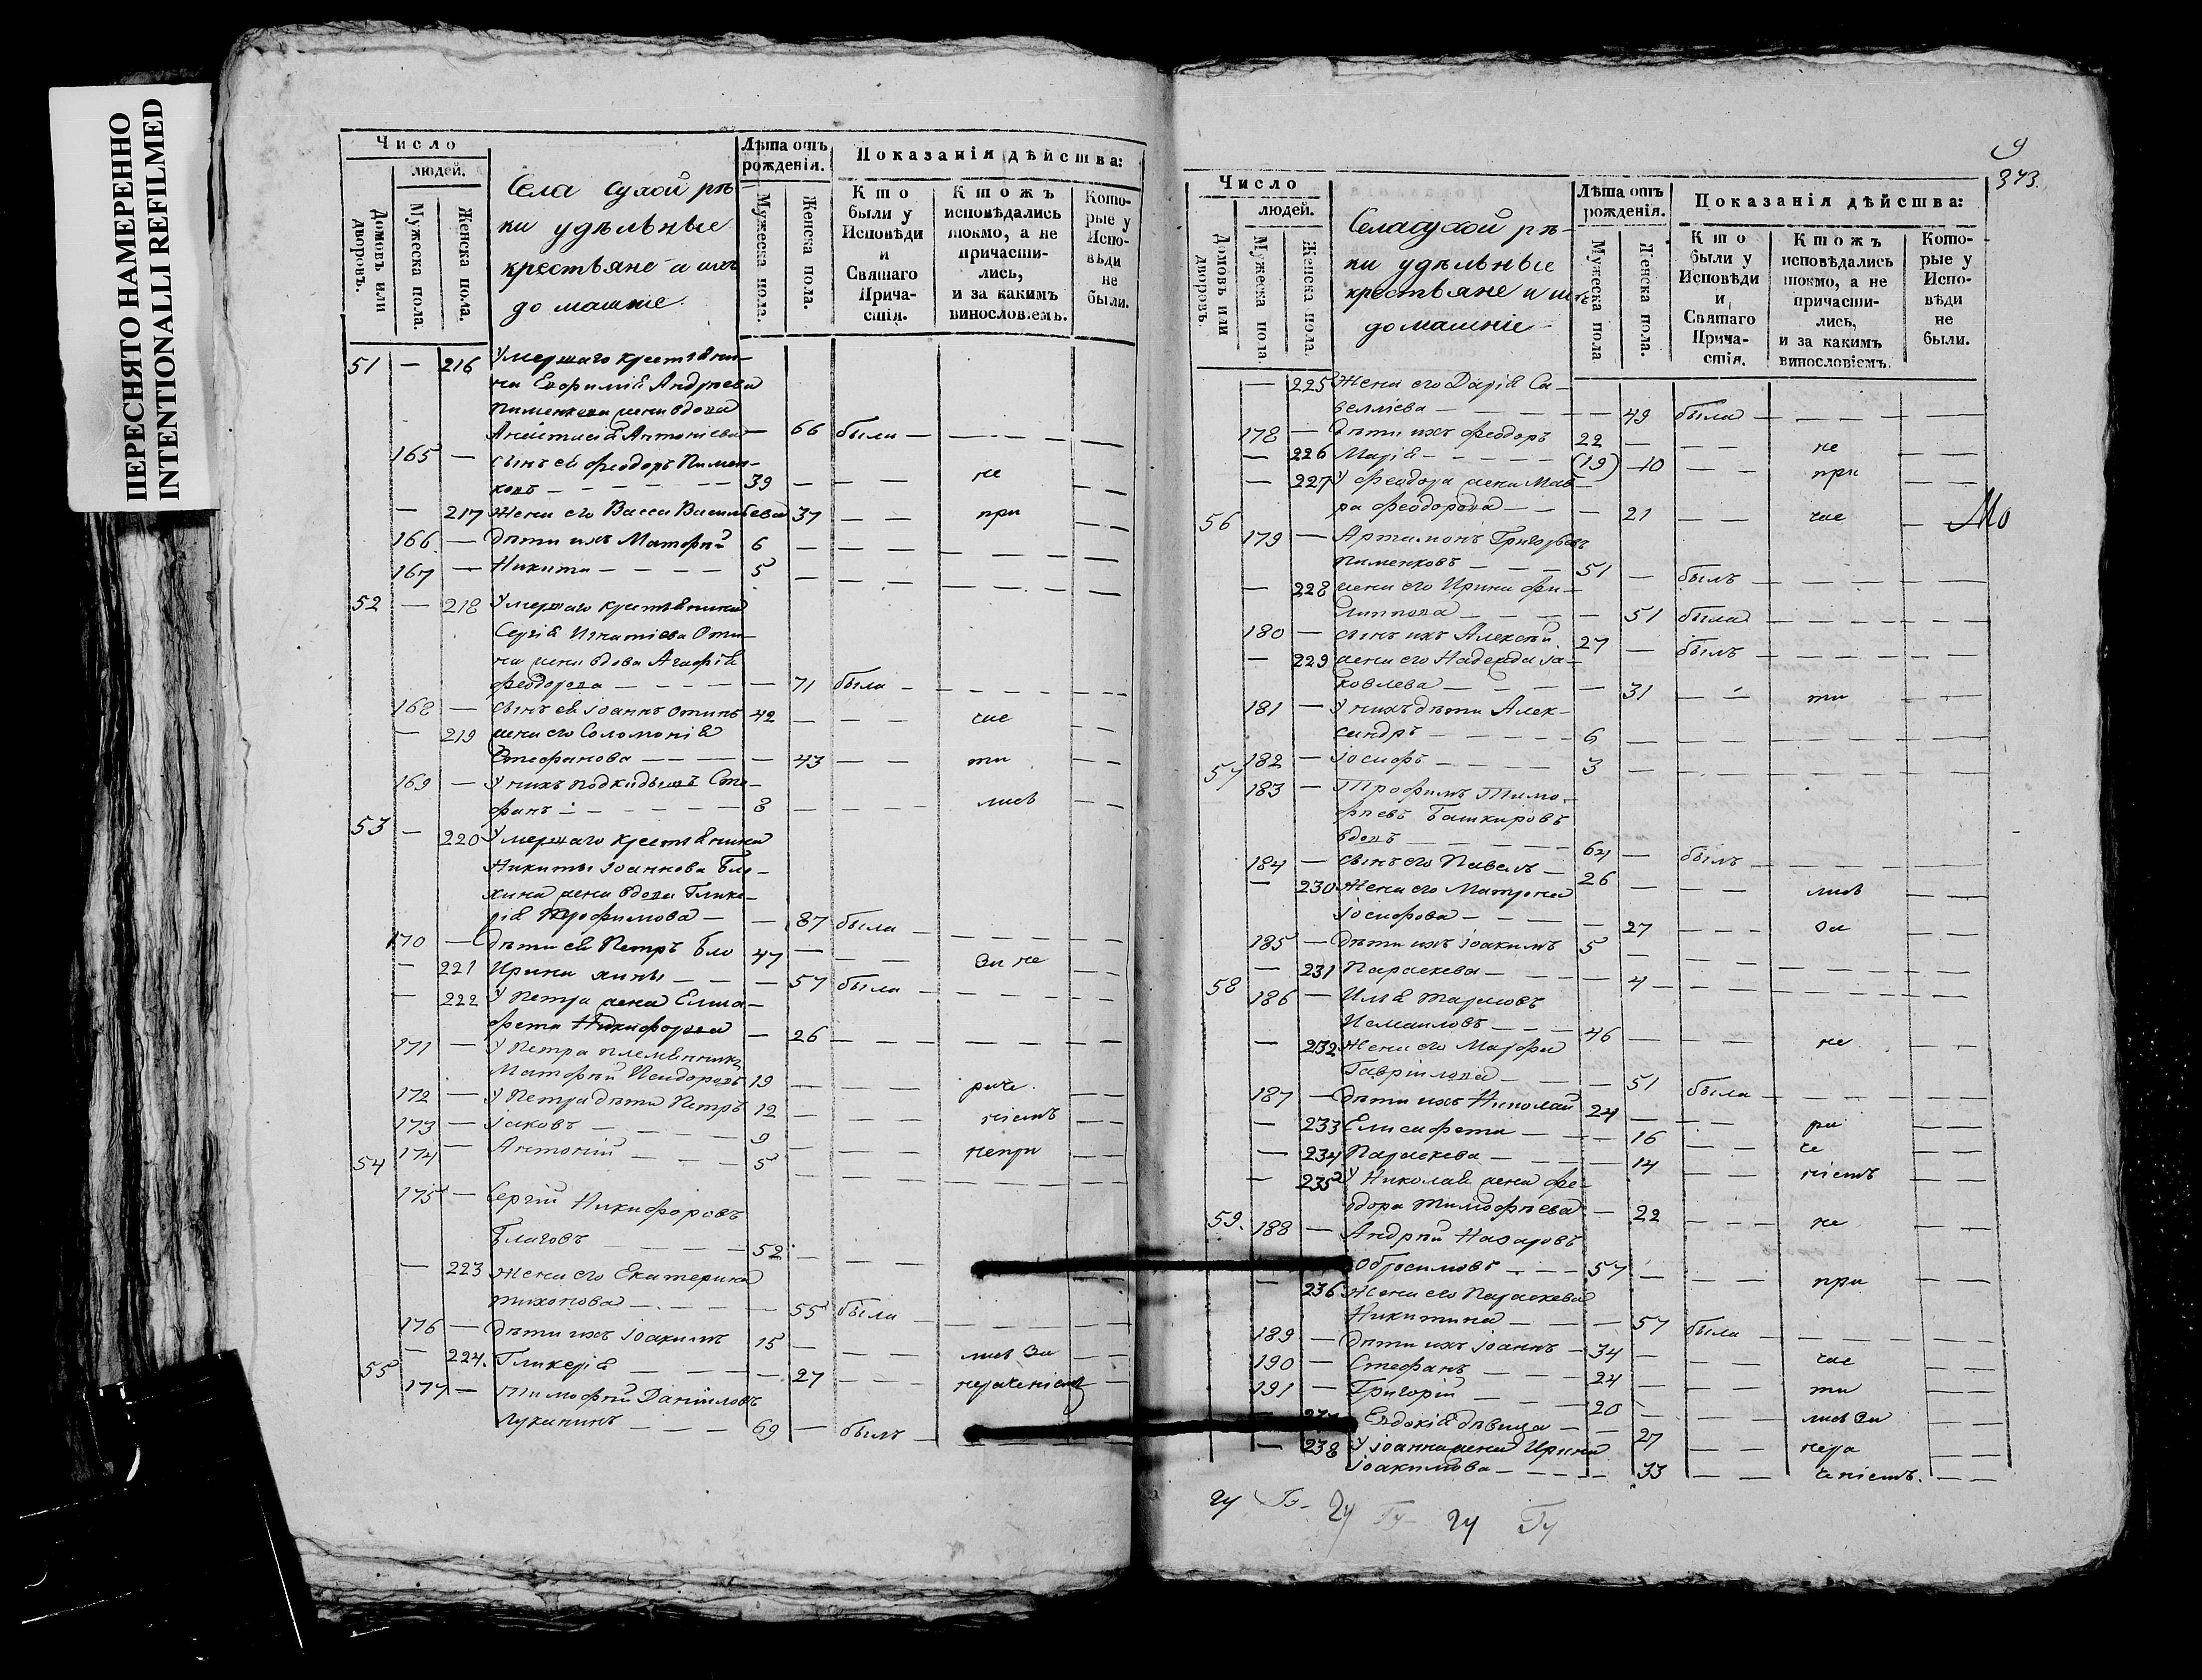 ПЕРЕСНЯТО НАМЕРЕННО
INTENTIONALLI REFILMED
Число
людей.
Домовъ или дворовъ.
Мужеска пола.
Женска пола.
Села Сухой рѣ
ки удѣльные
крестьяне и ихъ
домашніе.
Лѣта отъ рожденія.
Мужеска пола.
Женска пола.
Показанія дѣйства:
Кто были у Исповѣди и Святаго Причастія.
Ктожъ исповѣдались токмо, а не причастились, и за какимъ винословіемъ.
Которые у Исповѣди не были.
51 — 216 Умершаго крестьяни-
на Андреева
Пименкова жена вдова
Анастасія Антоніева — 66 была —
165 — сынъ ея Феодоръ Пимен-
ковъ — 39 — не
— 217 Жена его Васса Васильева 37 — при
166 — дѣти ихъ Матѳей 6 —
167 — Никита — 5 —
52 — 218 Умершаго крестьянина
Сергія Игнатіева
на жена вдова Агафія
Феодорова — 71 была —
168 — сынъ ея Іоаннъ 42 — час
— 219 жена его Соломонія
Стефанова — 43 — ти
169 — У нихъ подкидышъ Сте-
фанъ — 8 — лись
53 — 220 Умершаго крестьянина
Никиты Іоаннова Бло-
хина жена вдова Глике-
рія Трофимова — 87 была —
170 — дѣти ея Петръ Бло 47 — за не
— 221 Ирина хины — 57 была —
— 222 У Петра жена Елиса-
фета Никифорова — 26 —
171 — У Петра племянникъ
Матѳей Исидоровъ 19 — раче
172 — У Петра дѣти Петръ 12 — ніемъ
173 — Іаковъ — 9 — непри
174 — Антоній — 5 —
54
175 — Сергій Никифоровъ
Благовъ — 52 —
— 223 Жена его Екатерина
Тихонова — 55 была
176 — дѣти ихъ Іоакимъ 15 — лись за
— 224. Гликерія — 27 — нераченіемъ
55
177 — Тимофей Даніиловъ
Луканинъ — 69 — былъ —
9
373.
Число
людей.
Домовъ или дворовъ.
Мужеска пола
Женска пола.
Села Сухой рѣ-
ки удѣльные
крестьяне и ихъ
домашніе
Лѣта отъ рожденія.
Мужеска пола
Женска пола.
Показанія дѣйства:
Кто были у Исповѣди и Святаго Причастія.
Ктожъ исповѣдались токмо, а не причастились, и за какимъ винословіемъ.
Которые у Исповѣди не были.
— 225 Жена его Дарія Са-
велліева — 49 была —
178 — дѣти ихъ Феодоръ 22 — не
— 226 Марія — (19) — 10 — при
— 227 У Феодора жена Мав-
ра Феодорова — 21 — час —
56
179 — Артамонъ Григорьевъ
Пименковъ — 51 — былъ —
— 228 жена его Ирина Фи-
липпова — 51 была —
180 — сынъ ихъ Алексѣй 27 — былъ —
— 229 жена его Надежда Іа-
ковлева — 31 — ти
181 — У нихъ дѣти Алек-
сандръ — 6 —
182 — Іосифъ — 3 —
57
183 — Трофимъ Тимо-
феевъ Башкировъ
вдовъ — 64 — былъ —
184 — сынъ его Павелъ — 26 — лись
— 230 Жена его Матрона
Іосифова — 27 — за
185 — дѣти ихъ Іоакимъ 5 —
— 231 Параскева — 4 —
58
186 — Илія
Исмаиловъ — 46 — не
— 232 Жена его Марфа
Гавріилова — 51 была —
187 — дѣти ихъ Николай 24 — ра
— 233 Елисафета — 16 — че
— 234 Параскева — 14 — ніемъ
— 235 У Николая жена Фе-
одора Тимофѣева — 22 — не
59. 188 — Андрей Назаровъ
Обросимовъ — 57 — при
— 236 Жена его Параскева
Никитина — 57 была —
189 — дѣти ихъ Іоаннъ 34 — час
190 — Стефанъ — 24 — ти
191 — Григорій — 20 — лись за
Евдокія дѣвица — 27 — нера
— 238 У Іоанна жена Ирина
Іоакимова — 33 — ченіемъ.